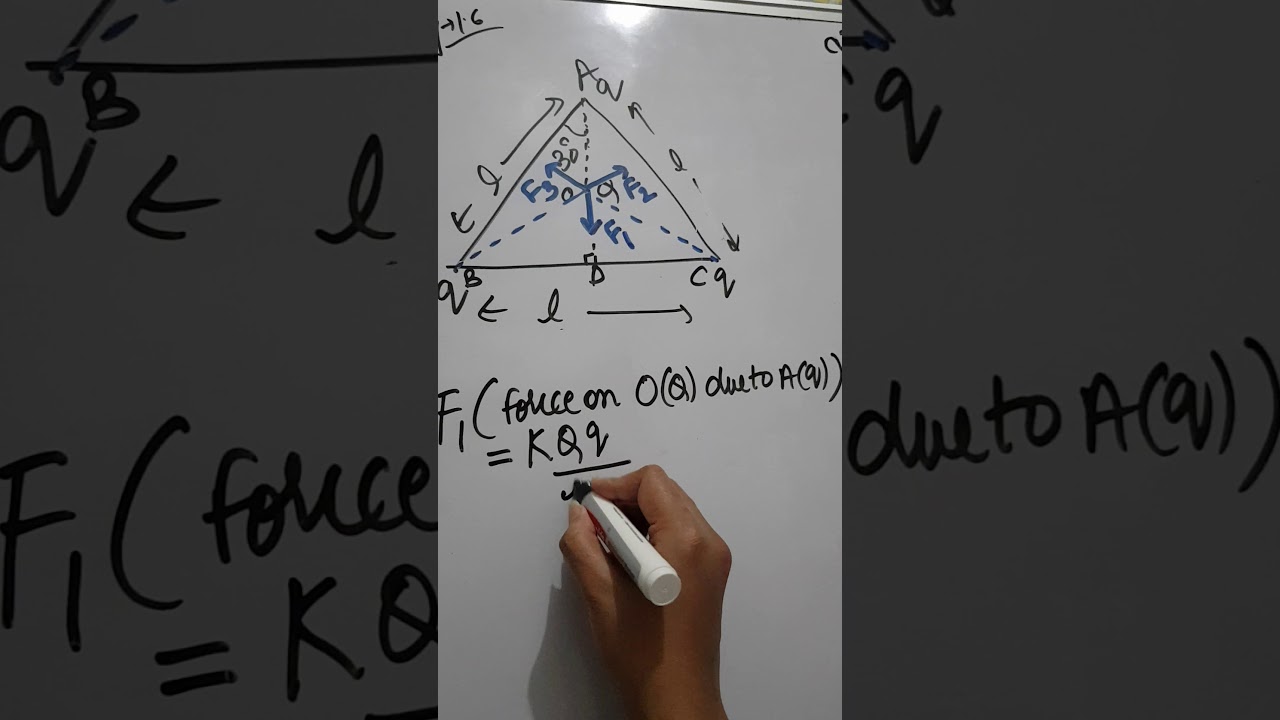 →1.6
A q
30°
l
l
F3
F2
O
Q
F1
B
D
C
q
q
← l →
F1 (force on O(Q) due to A(q))
= KQq